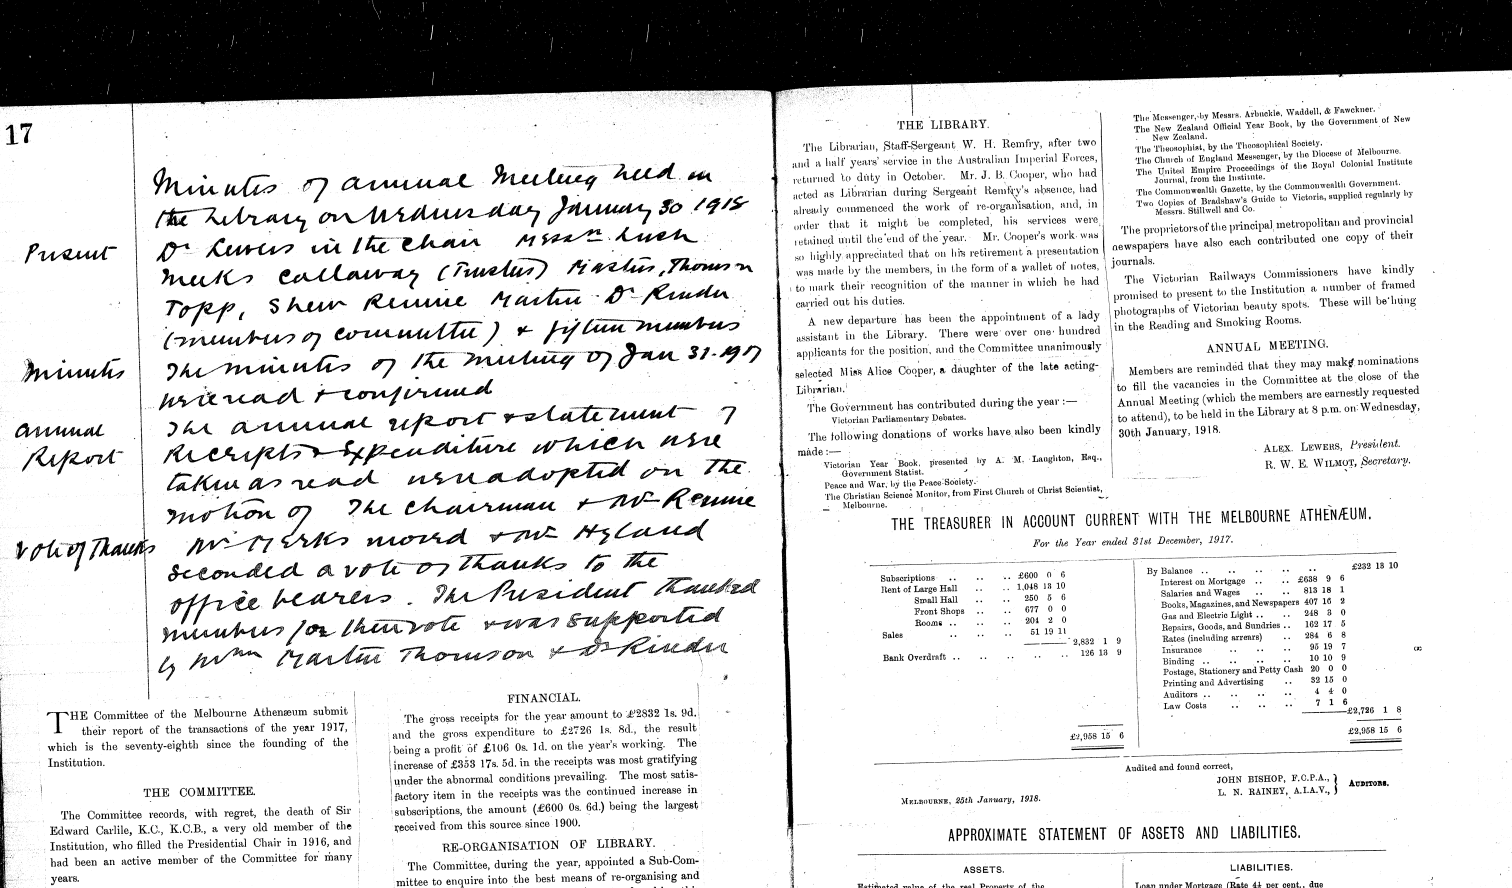 17
Minutes of annual Meeting held in
the Library on Wednesday January 30 1918
Present
Dr Lewers in the chair Messrs Lush
Meeks Callaway (Trustees) Masters, Thomson
Topp, Shew Rennie Martin Dr Rinder
(members of committee) & fifteen members
Minutes
The minutes of the meeting of Jan 31-1917
were read & confirmed
Annual
Report
The annual report & statement of
Receipts & Expenditure which were
taken as read were adopted on the
motion of The Chairman & Mr Rennie
Vote of Thanks
Mr Meeks moved & Mr Hyland
seconded a vote of thanks to the
office bearers. The President thanked
members for their vote & was supported
by Martin Thomson & Dr Rinder
THE Committee of the Melbourne Athenæum submit
their report of the transactions of the year 1917,
which is the seventy-eighth since the founding of the
Institution.
THE COMMITTEE.
The Committee records, with regret, the death of Sir
Edward Carlile, K.C., K.C.B., a very old member of the
Institution, who filled the Presidential Chair in 1916, and
had been an active member of the Committee for many
years.
FINANCIAL.
The gross receipts for the year amount to £2832 1s. 9d.
and the gross expenditure to £2726 1s. 8d., the result
being a profit of £106 0s. 1d. on the year's working. The
increase of £353 17s. 5d. in the receipts was most gratifying
under the abnormal conditions prevailing. The most satis-
factory item in the receipts was the continued increase in
subscriptions, the amount (£600 0s. 6d.) being the largest
received from this source since 1900.
RE-ORGANISATION OF LIBRARY.
The Committee, during the year, appointed a Sub-Com-
mittee to enquire into the best means of re-organising and
THE LIBRARY.
The Librarian, Staff-Sergeant W. H. Remfry, after two
and a half years' service in the Australian Imperial Forces,
returned to duty in October. Mr. J. B. Cooper, who had
acted as Librarian during Sergeant Remfry's absence, had
already commenced the work of re-organisation, and, in
order that it might be completed, his services were
retained until the end of the year. Mr. Cooper's work was
so highly appreciated that on his retirement a presentation
was made by the members, in the form of a wallet of notes,
to mark their recognition of the manner in which he had
carried out his duties.
A new departure has been the appointment of a lady
assistant in the Library. There were over one hundred
applicants for the position, and the Committee unanimously
selected Miss Alice Cooper, a daughter of the late acting-
Librarian.
The Government has contributed during the year :—
Victorian Parliamentary Debates.
The following donations of works have also been kindly
made :—
Victorian Year Book, presented by A. M. Laughton, Esq.,
Government Statist.
Peace and War, by the Peace Society.
The Christian Science Monitor, from First Church of Christ Scientist,
Melbourne.
The Messenger, by Messrs. Arbuckle, Waddell, & Fawckner.
The New Zealand Official Year Book, by the Government of New
New Zealand.
The Theosophist, by the Theosophical Society.
The Church of England Messenger, by the Diocese of Melbourne.
The United Empire Proceedings of the Royal Colonial Institute
Journal, from the Institute.
The Commonwealth Gazette, by the Commonwealth Government.
Two Copies of Bradshaw's Guide to Victoria, supplied regularly by
Messrs. Stillwell and Co.
The proprietors of the principal metropolitan and provincial
newspapers have also each contributed one copy of their
journals.
The Victorian Railways Commissioners have kindly
promised to present to the Institution a number of framed
photographs of Victorian beauty spots. These will be hung
in the Reading and Smoking Rooms.
ANNUAL MEETING.
Members are reminded that they may make nominations
to fill the vacancies in the Committee at the close of the
Annual Meeting (which the members are earnestly requested
to attend), to be held in the Library at 8 p.m. on Wednesday,
30th January, 1918.
ALEX. LEWERS, President.
R. W. E. WILMOT, Secretary.
THE TREASURER IN ACCOUNT CURRENT WITH THE MELBOURNE ATHENÆUM.
For the Year ended 31st December, 1917.
Subscriptions .. .. .. £600 0 6
Rent of Large Hall .. .. 1,048 13 10
Small Hall .. .. 250 5 6
Front Shops .. .. 677 0 0
Rooms .. .. .. 204 2 0
Sales .. .. .. 51 19 11
2,832 1 9
Bank Overdraft .. .. .. .. .. 126 13 9
£2,958 15 6
By Balance .. .. .. .. .. £232 13 10
Interest on Mortgage .. .. £638 9 6
Salaries and Wages .. .. 813 18 1
Books, Magazines, and Newspapers 407 16 2
Gas and Electric Light .. .. 248 3 0
Repairs, Goods, and Sundries .. 162 17 5
Rates (including arrears) .. 284 6 8
Insurance .. .. .. 95 19 7
Binding .. .. .. .. 10 10 9
Postage, Stationery and Petty Cash 20 0 0
Printing and Advertising .. 32 15 0
Auditors .. .. .. .. 4 4 0
Law Costs .. .. .. 7 1 6
£2,726 1 8
£2,958 15 6
Audited and found correct,
JOHN BISHOP, F.C.P.A.,
L. N. RAINEY, A.I.A.V.,
} AUDITORS.
MELBOURNE, 25th January, 1918.
APPROXIMATE STATEMENT OF ASSETS AND LIABILITIES.
ASSETS.
LIABILITIES.
Estimated value of the real Property of the
Loan under Mortgage (Rate 4½ per cent., due